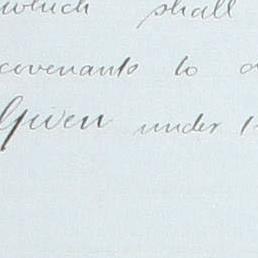 which shall
covenants to
Given under